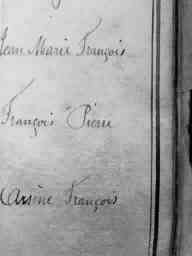 Jean Marie François
François Pierre
Arsène François